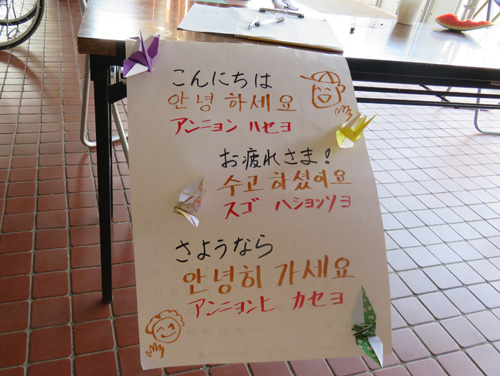 こんにちは
안녕 하세요
アンニョン ハセヨ
お疲れさま！
수고 하셨어요
スゴ ハショッソヨ
さようなら
안녕히 가세요
アンニョンヒ カセヨ